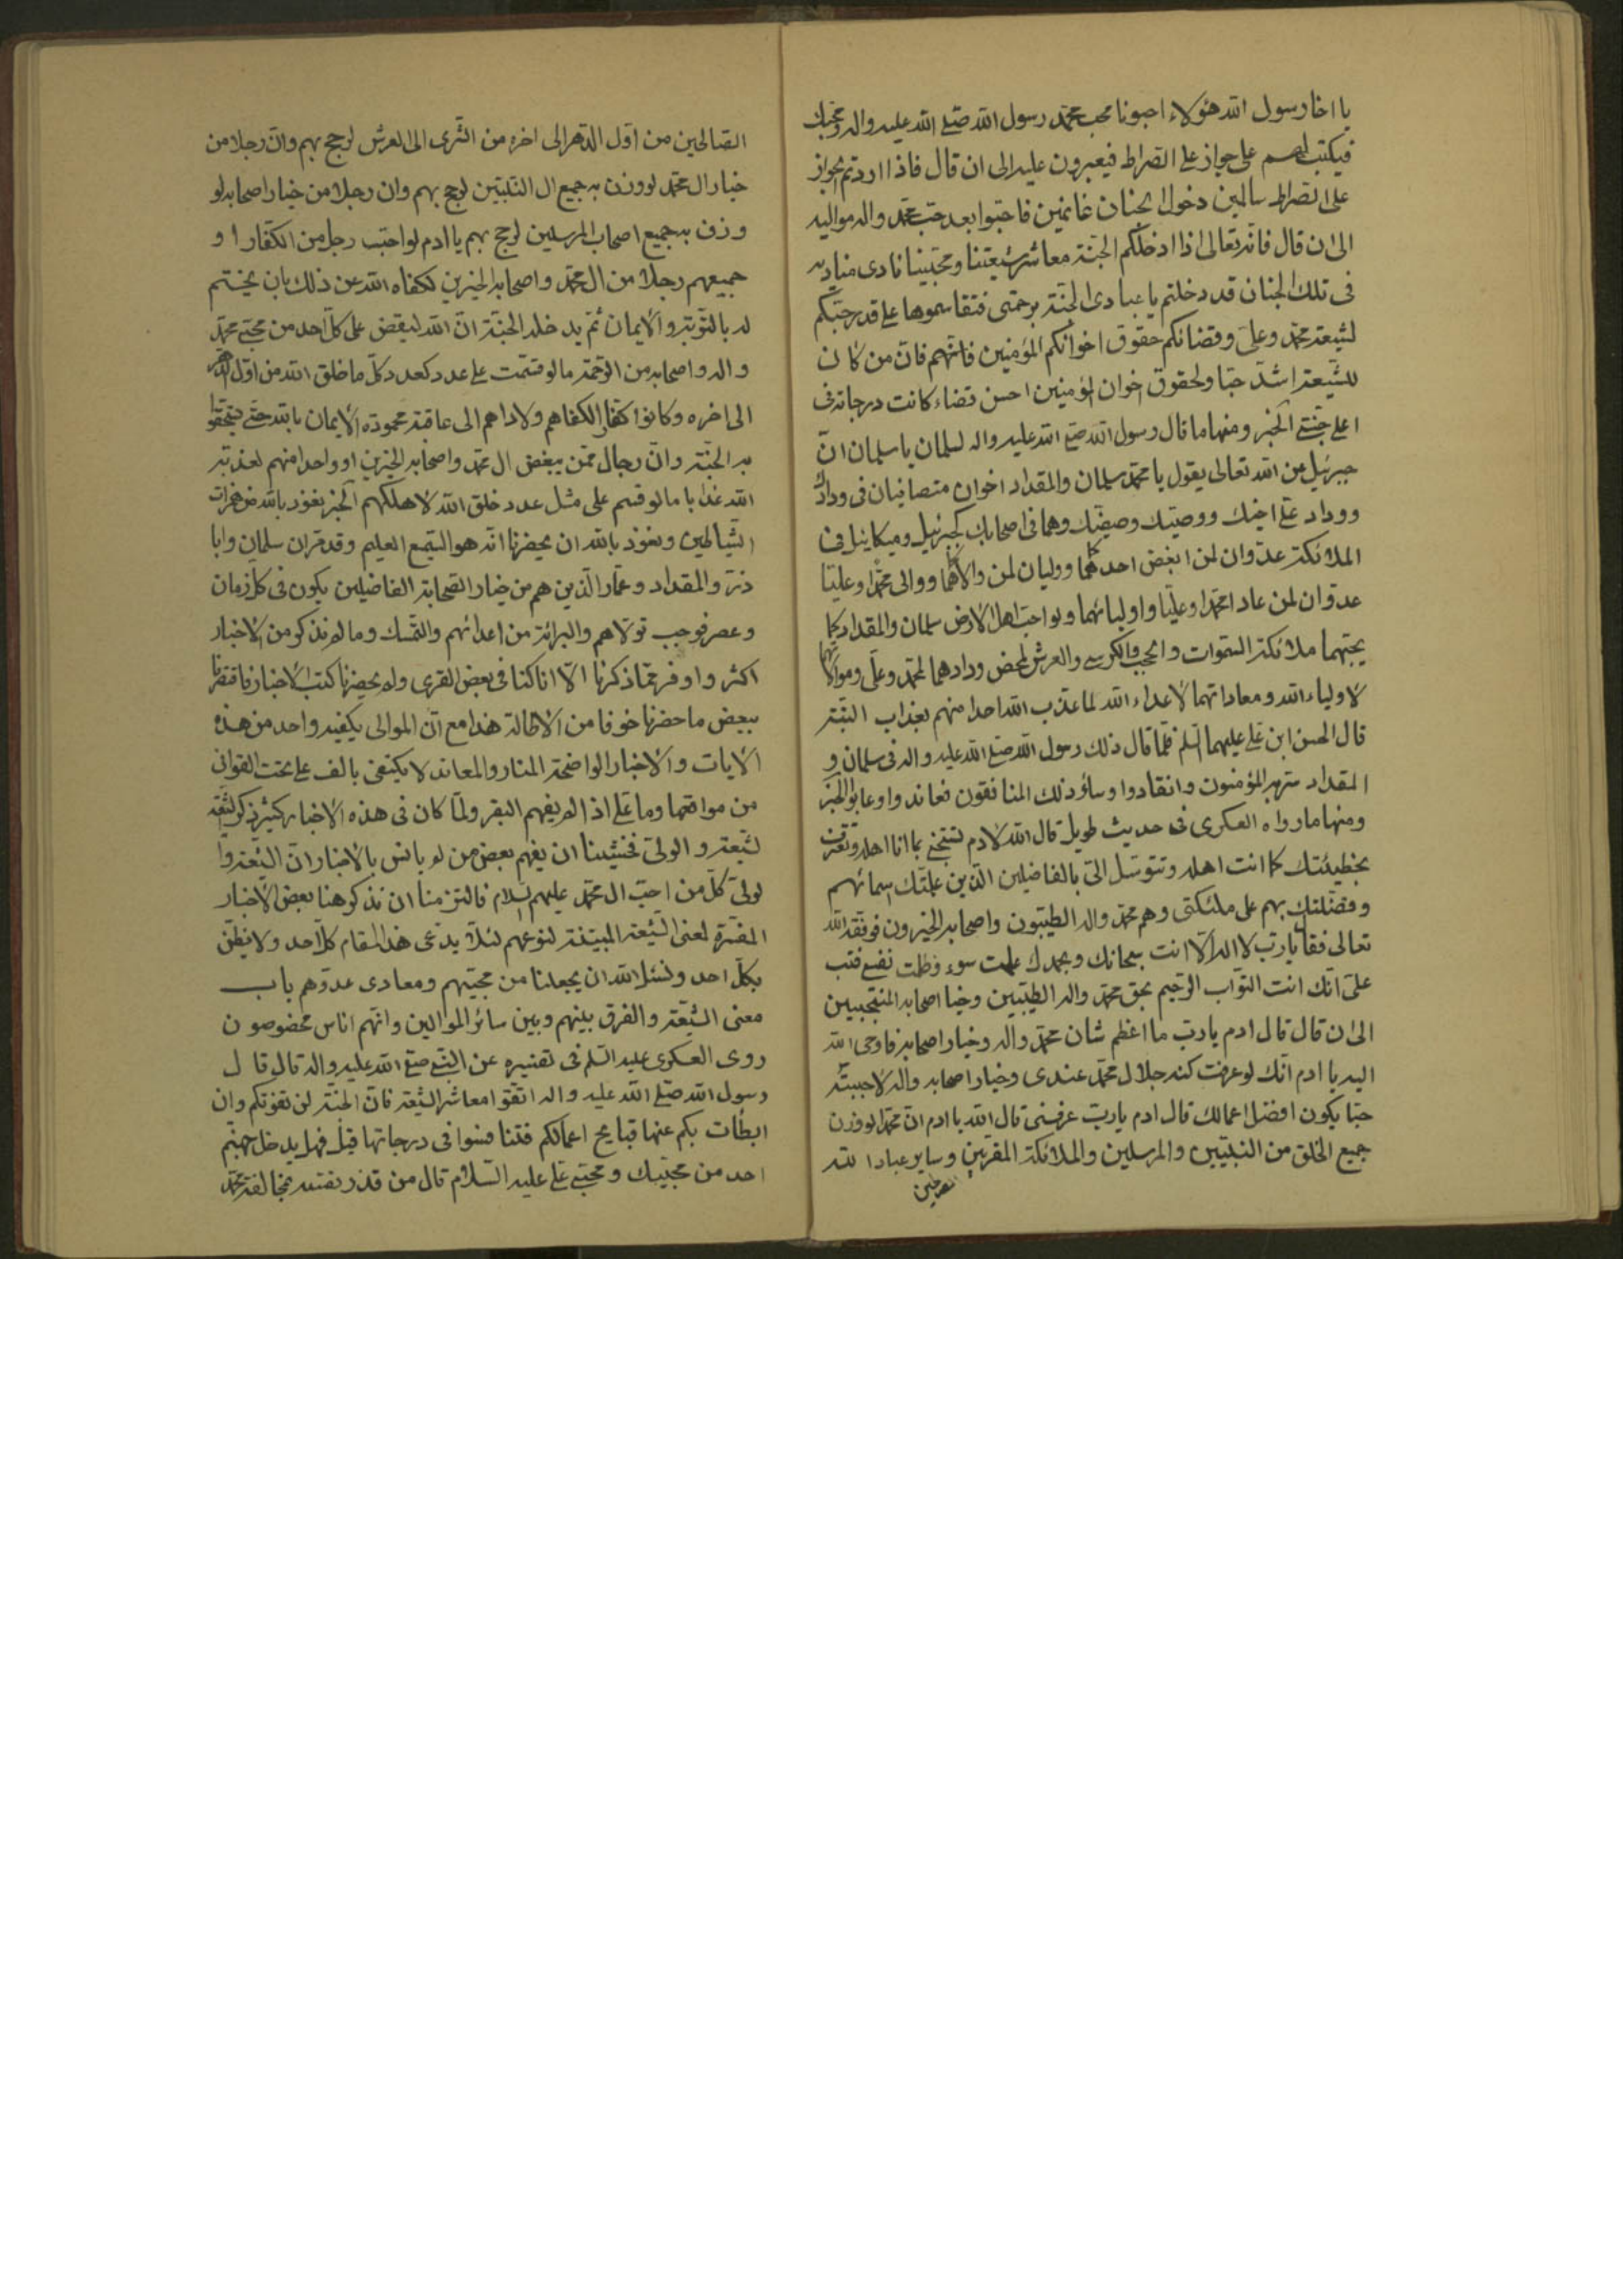 يا اخا رسول الله هؤلاء احبونا محب محمد رسول الله صلى الله عليه واله ومحبك
فيكتب لهم على جواز على الصراط فيعبرون عليه الى ان قال فاذا اردتم الجواز
على الصراط سالمين دخول الجنان غانمين فاحبوا بعد حب محمد واله مواليه
الى ان قال فانه تعالى اذا ادخلكم الجنة معاشر شيعتنا ومحبينا نادى مناديه
فى تلك الجنان قد دخلتم يا عبادى الجنة برحمتى فتقاسموها على قدر حبكم
لشيعة محمد وعلى وقضائكم حقوق اخوانكم المؤمنين فايهم فان من كان
للشيعة اشد حبا ولحقوق اخوان المؤمنين احسن قضاء كانت درجاته فى
اعلى جنتى الخبر ومنها ما قال رسول الله صلى الله عليه واله لسلمان يا سلمان ان
جبرئيل عن الله تعالى يقول يا محمد سلمان والمقداد اخوان متصافيان فى ودادك
ووداد على اخيك ووصيك وصفيك وهما فى اصحابك كجبرئيل وميكائيل فى
الملائكة عدوان لمن ابغض احدهما ووليان لمن والاهما ووالى محمدا وعليا
عدوان لمن عادا محمدا وعليا واوليائهما ولو احب اهل الارض سلمان والمقداد كما
يحبهما ملائكة السموات والحجب والكرسى والعرش لمحض ودادهما لمحمد وعلى وموالاتهما
لاولياء الله ومعاداتهما لاعداء الله لما عذب الله احدا منهم بعذاب البتة
قال الحسن ابن على عليهما السلم فلما قال ذلك رسول الله صلى الله عليه واله فى سلمان و
المقداد سر به المؤمنون وانقادوا وساؤ ذلك المنافقون فعاندوا وعابوا الخبر
ومنها ما رواه العسكرى فى حديث طويل قال الله لادم بما انا اهله وتعترف
بخطيئتك كما انت اهله وتتوسل الى بالفاضلين الذين علمتك اسمائهم
وفضلتك بهم على ملئكتى وهم محمد واله الطيبون واصحابه الخيرون فوفقه الله
تعالى فقال يا رب لا اله الا انت سبحانك وبحمدك علمت سوء وظلمت نفسى فتب
على انك انت التواب الرحيم بحق محمد واله الطيبين وخيا اصحابه المنتجبين
الى ان قال قال ادم يا رب ما اعظم شان محمد واله وخيار اصحابه فاوحى الله
اليه يا ادم انك لو عرفت كنه جلال محمد عندى وخيار اصحابه واله لاحببته
حبا يكون افضل اعمالك قال ادم يا رب عرفنى قال الله يا ادم ان محمدا لو وزن
جميع الخلق من النبيين والمرسلين والملائكة المقربين وساير عباد الله
الصالحين
الصالحين من اول الدهر الى اخره من الثرى الى العرش لرجح بهم وان رجلا من
خيار ال محمد لو وزن به جميع ال النبيين لرجح بهم وان رجلا من خيار اصحابه لو
وزن به جميع اصحاب المرسلين لرجح بهم يا ادم لو احب رجل من الكفار او
جميعهم رجلا من ال محمد واصحابه الخيرين لكفاه الله عن ذلك بان يختم
له بالتوبة والايمان ثم يدخله الجنة ان الله ليفيض على كل احد من محبى محمد
واله واصحابه من الرحمة ما لو قسمت على عدد كعدد كل ما خلق الله من اول الدهر
الى اخره وكانوا كفارا لكفاهم ولاداهم الى عاقبة محمودة الايمان بالله حتى يستحقوا
به الجنة وان رجلا ممن يبغض ال محمد واصحابه الخيرين او واحدا منهم لعذبه
الله عذابا ما لو قسم على مثل عدد خلق الله لاهلكهم الخبر نعوذ بالله من همزات
الشياطين ونعوذ بالله ان يحضرنا انه هو السميع العليم وقد قران سلمان وابا
ذر والمقداد وعمار الذين هم من خيار الصحابة الفاضلين يكون فى كل زمان
وعصر فوجب تولاهم والبرائة من اعدائهم والتمسك وما لم نذكر من الاخبار
اكثر واوفر مما ذكرنا الا انا كنا فى بعض القرى ولم يحضرنا كتب الاخبار فاقتصرنا
ببعض ما حضرنا خوفا من الاطالة هذا مع ان الموالى يكفيه واحد من هذه
الايات والاخبار الواضحة المنار والمعاند لا يكتفى بالف على نحت القوافى
من مواقعها وما على اذا لم يفهم البقر ولما كان فى هذه الاخبار كثير ذكر الشيعة
لشيعة والولى فخشينا ان يفهم بعض من لم يانس بالاخبار ان الشيعة وا
لولى كل من احب ال محمد عليهم السلام فالتزمنا ان نذكر هنا بعض الاخبار
المفسرة لمعنى الشيعة المبينة لنوعهم لئلا يدعى هذا المقام كل احد ولا يظن
بكل احد ونسئل الله ان يجعلنا من محبيهم ومعادى عدوهم باب
معنى الشيعة والفرق بينهم وبين سائر الموالين وانهم اناس مخصوصون
روى العسكرى عليه السلم فى تفسيره عن النبى صلى الله عليه واله قال قال
رسول الله صلى الله عليه واله اتقوا معاشر الشيعة فان الجنة لن تفوتكم وان
ابطات بكم عنها قبايح اعمالكم فتنافسوا فى درجاتها قيل فهل يدخل جهنم
احد من محبيك ومحبى على عليه السلام قال من قذر نفسه بمخالفة محمد